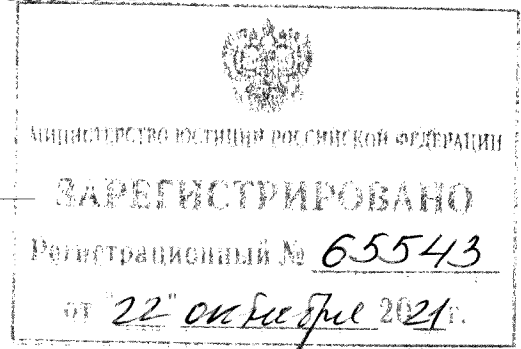 МИНИСТЕРСТВО ЮСТИЦИИ РОССИЙСКОЙ ФЕДЕРАЦИИ
ЗАРЕГИСТРИРОВАНО
Регистрационный № 65543
от "22" октября 2021 г.